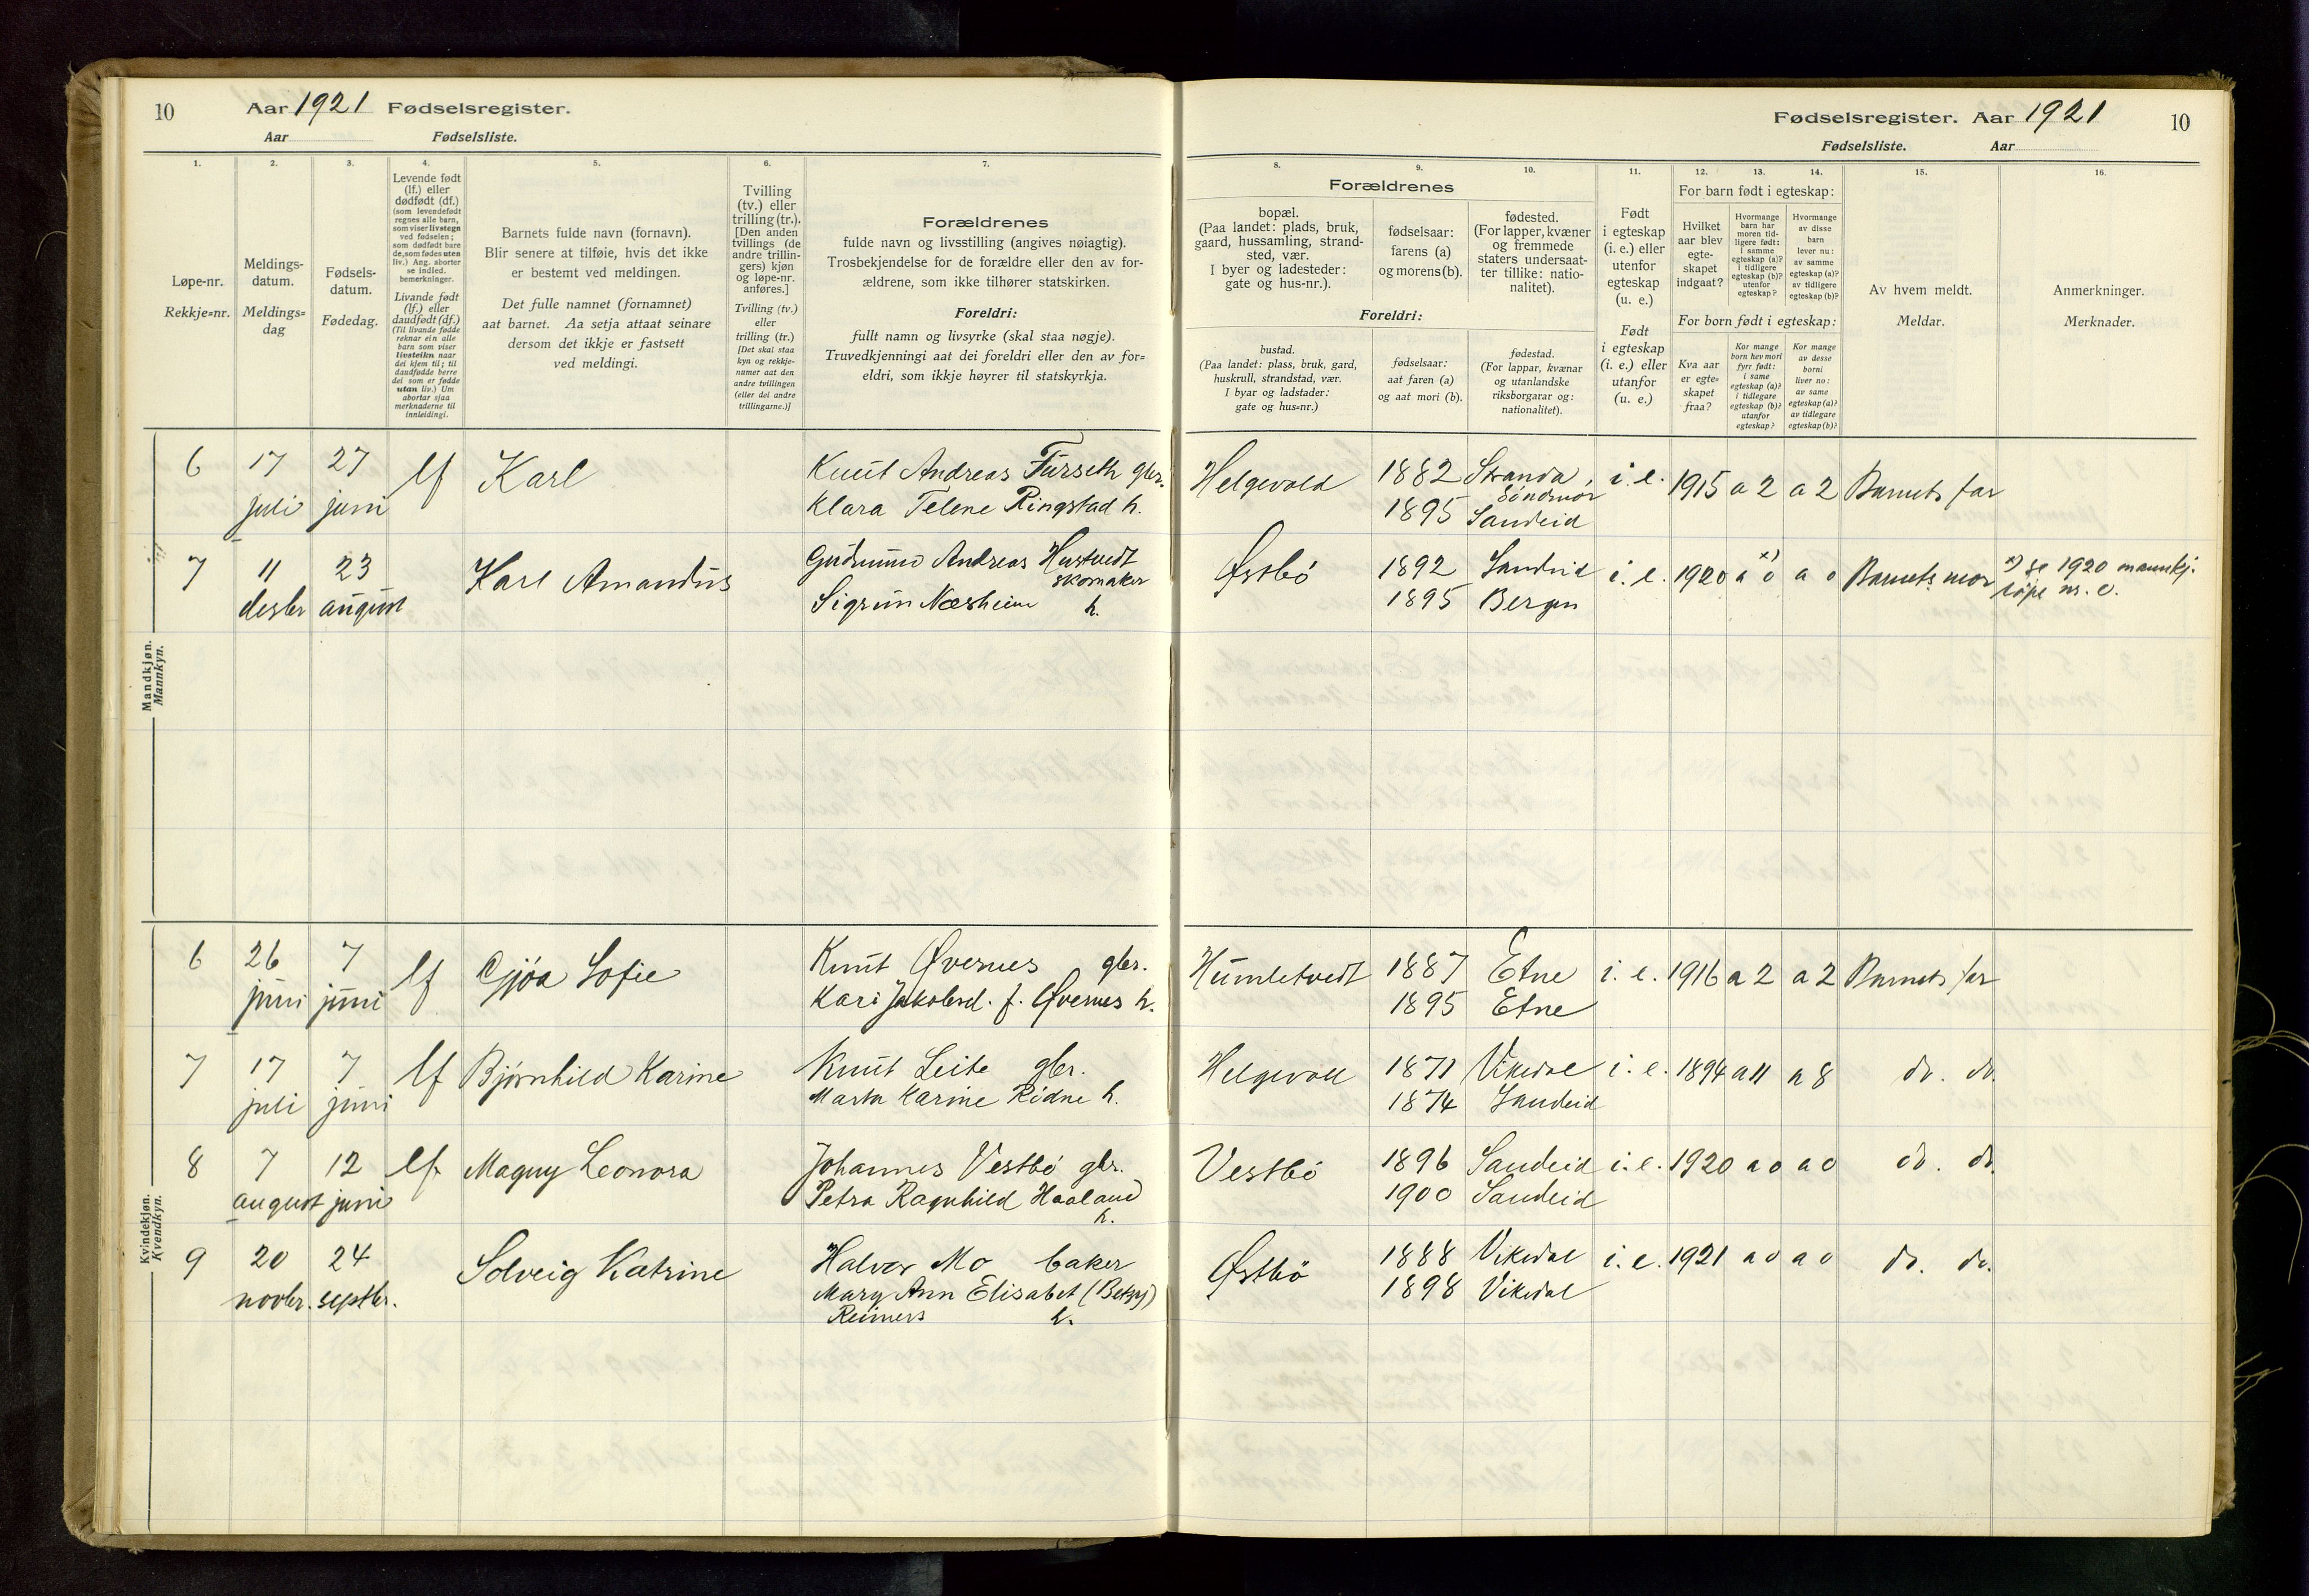 10 Aar 1921 Fødselsregister.
Aar Fødselsliste.
1. 2. 3. 4. 5. 6. 7.
Løpe-nr.
Rekkje=nr.
Meldings-
datum.
Meldings=
dag
Fødsels-
datum.
Fødedag.
Levende født
(lf.) eller
dødfødt (df.)
(som levendefødt
regnes alle barn,
som viser livstegn
ved fødselen;
som dødfødt bare
de, som fødes uten
liv.) Ang. aborter
se indled.
bemerkninger.
Livande født
(lf.) eller
daudfødt (df.)
(Til livande fødde
reknar ein alle
barn som viser
livsteikn naar
dei kjem til; til
daudfødde berre
dei som er fødde
utan liv.) Um
abortar sjaa
merknaderne til
innleidingi.
Barnets fulde navn (fornavn).
Blir senere at tilføie, hvis det ikke
er bestemt ved meldingen.
Det fulle namnet (fornamnet)
aat barnet. Aa setja attaat seinare
dersom det ikkje er fastsett
ved meldingi.
Tvilling
(tv.) eller
trilling (tr.).
[Den anden
tvillings (de
andre trillin-
gers) kjøn
og løpe-nr.
anføres.]
Tvilling (tv.)
eller
trilling (tr.)
[Det skal staa
kyn og rekkje-
numer aat den
andre tvillingen
(eller dei andre
trillingarne.)]
Forældrenes
fulde navn og livsstilling (angives nøiagtig).
Trosbekjendelse for de forældre eller den av for-
ældrene, som ikke tilhører statskirken.
Foreldri:
fullt namn og livsyrke (skal staa nøgje).
Truvedkjenningi aat dei foreldri eller den av for=
eldri, som ikkje høyrer til statskyrkja.
Mandkjøn.
Mannkyn.
6 17 juli 27 juni lf Karl
Knut Andreas Furseth gbr.
Klara Telene Ringstad h.
7 11 desbr 23 august Karl Amandus
Gudmund Andreas Hustvedt
skomaker
Sigrun Næsheim h.
Kvindekjøn.
Kvendkyn.
6 26 juni 7 juni lf Gjøa Sofie
Knut Øvernes gbr.
Kari Jakobsd. f. Øvernes h.
7 17 juli 7 juni lf Bjørnhild Karine
Knut Leite gbr.
Marta Karine Ridne h.
8 7 august 12 juni lf Magny Leonora
Johannes Vestbö gbr.
Petra Ragnhild Haaland
h.
9 20 novbr. 24 septbr. Solveig Katrine
Halvor Mo baker
Mary Ann Elisabet (Betzy)
Reimers h.
Fødselsregister. Aar 1921 10
Fødselsliste. Aar
8. 9. 10. 11. 12. 13. 14. 15. 16.
Forældrenes
bopæl.
(Paa landet: plads, bruk,
gaard, hussamling, strand-
sted, vær.
I byer og ladesteder:
gate og hus-nr.).
fødselsaar:
farens (a)
og morens (b).
fødested.
(For lapper, kvæner
og fremmede
staters undersaat-
ter tillike: natio-
nalitet).
Foreldri:
bustad.
(Paa landet: plass, bruk, gard,
huskrull, strandstad, vær.
I byar og ladstader:
gate og hus=nr.)
fødselsaar:
aat faren (a)
og aat mori (b).
fødestad.
(For lappar, kvænar
og utanlandske
riksborgarar og:
nationalitet).
Født
i egteskap
(i. e.) eller
utenfor
egteskap
(u. e.)
Født
i egteskap
(i. e.) eller
utanfor
(u. e.)
For barn født i egteskap:
Hvilket
aar blev
egte-
skapet
indgaat?
Hvormange
barn har
moren tid-
ligere født:
i samme
egteskap (a)?
i tidligere
egteskap (b)?
utenfor
egteskap?
Hvormange
av disse
barn
lever nu:
av samme
egteskap (a)?
av tidligere
egteskap (b)?
For born født i egteskap:
Kva aar
er egte=
skapet
fraa?
Kor mange
born hev mori
fyrr født:
i same
egteskap (a)?
i tidlegare
egteskap (b)?
utanfor
egteskap?
Kor mange
av desse
borni
liver no:
av same
egteskap (a)?
av tidlegare
egteskap (b)?
Av hvem meldt.
Meldar.
Anmerkninger.
Merknader.
Helgevold 1882 Stranda, Söndmör i. e. 1915 a 2 a 2 Barnets far
1895 Sandeid
Østbö 1892 Sandeid i. e. 1920 a x) 0 a 0 Barnets mor x) se 1920 mannkj.
1895 Bergen löpe nr.
Humletvedt 1887 Etne i. e. 1916 a 2 a 2 Barnets far
1895 Etne
Helgevold 1871 Vikedal i. e. 1894 a 11 a 8 do. do.
1874 Sandeid
Vestbö 1896 Sandeid i. e. 1920 a 0 a 0 do. do.
1900 Sandeid
Østbö 1888 Vikedal i. e. 1921 a 0 a 0 do. do.
1898 Vikedal